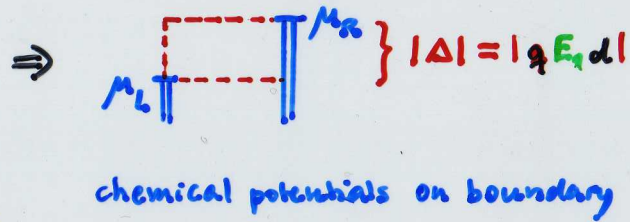 ⇒ μ_L μ_R } |Δ| = |q E₁ d|
chemical potentials on boundary